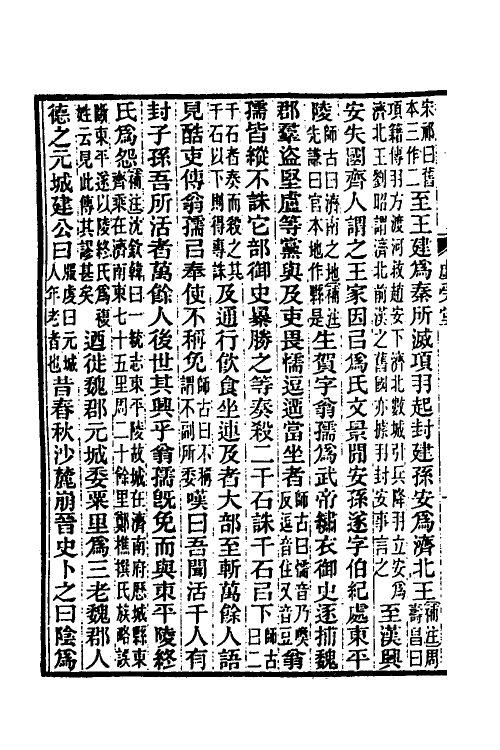 宋祁曰舊本三作二至王建爲秦所滅項羽起封建孫安爲濟北王補注周壽昌曰
項籍傳羽方渡河救趙安下濟北數城引兵降羽羽立安爲濟北王劉昭謂濟北前漢之舊國亦據羽封安事言之至漢興
安失國齊人謂之王家因㠯爲氏文景閒安孫遂字伯紀處東平
陵師古曰濟南之地補注先謙曰官本地作縣是生賀字翁孺爲武帝繡衣御史逐捕魏
郡羣盜堅盧等黨與及吏畏懦逗遛當坐者師古曰懦音乃喚反逗音住又音豆翁
孺皆縱不誅它部御史暴勝之等奏殺二千石誅千石㠯下師古曰二
千石者奏而殺之其千石以下則得專誅及通行飮食坐連及者大部至斬萬餘人語
見酷吏傳翁孺㠯奉使不稱免師古曰不稱謂不副所委嘆曰吾聞活千人有
封子孫吾所活者萬餘人後世其興乎翁孺旣免而與東平陵終
氏爲怨補注沈欽韓曰一統志東平陵故城在濟南府歷城縣東齊乘在濟南東七十五里周二十餘里鄭樵撰氏族略誤
斷東平遂以陵終氏爲複姓云見此傳其謬甚矣迺徙魏郡元城委粟里爲三老魏郡人
德之元城建公曰服虔曰元城人年老者也昔春秋沙麓崩晉史卜之曰陰爲